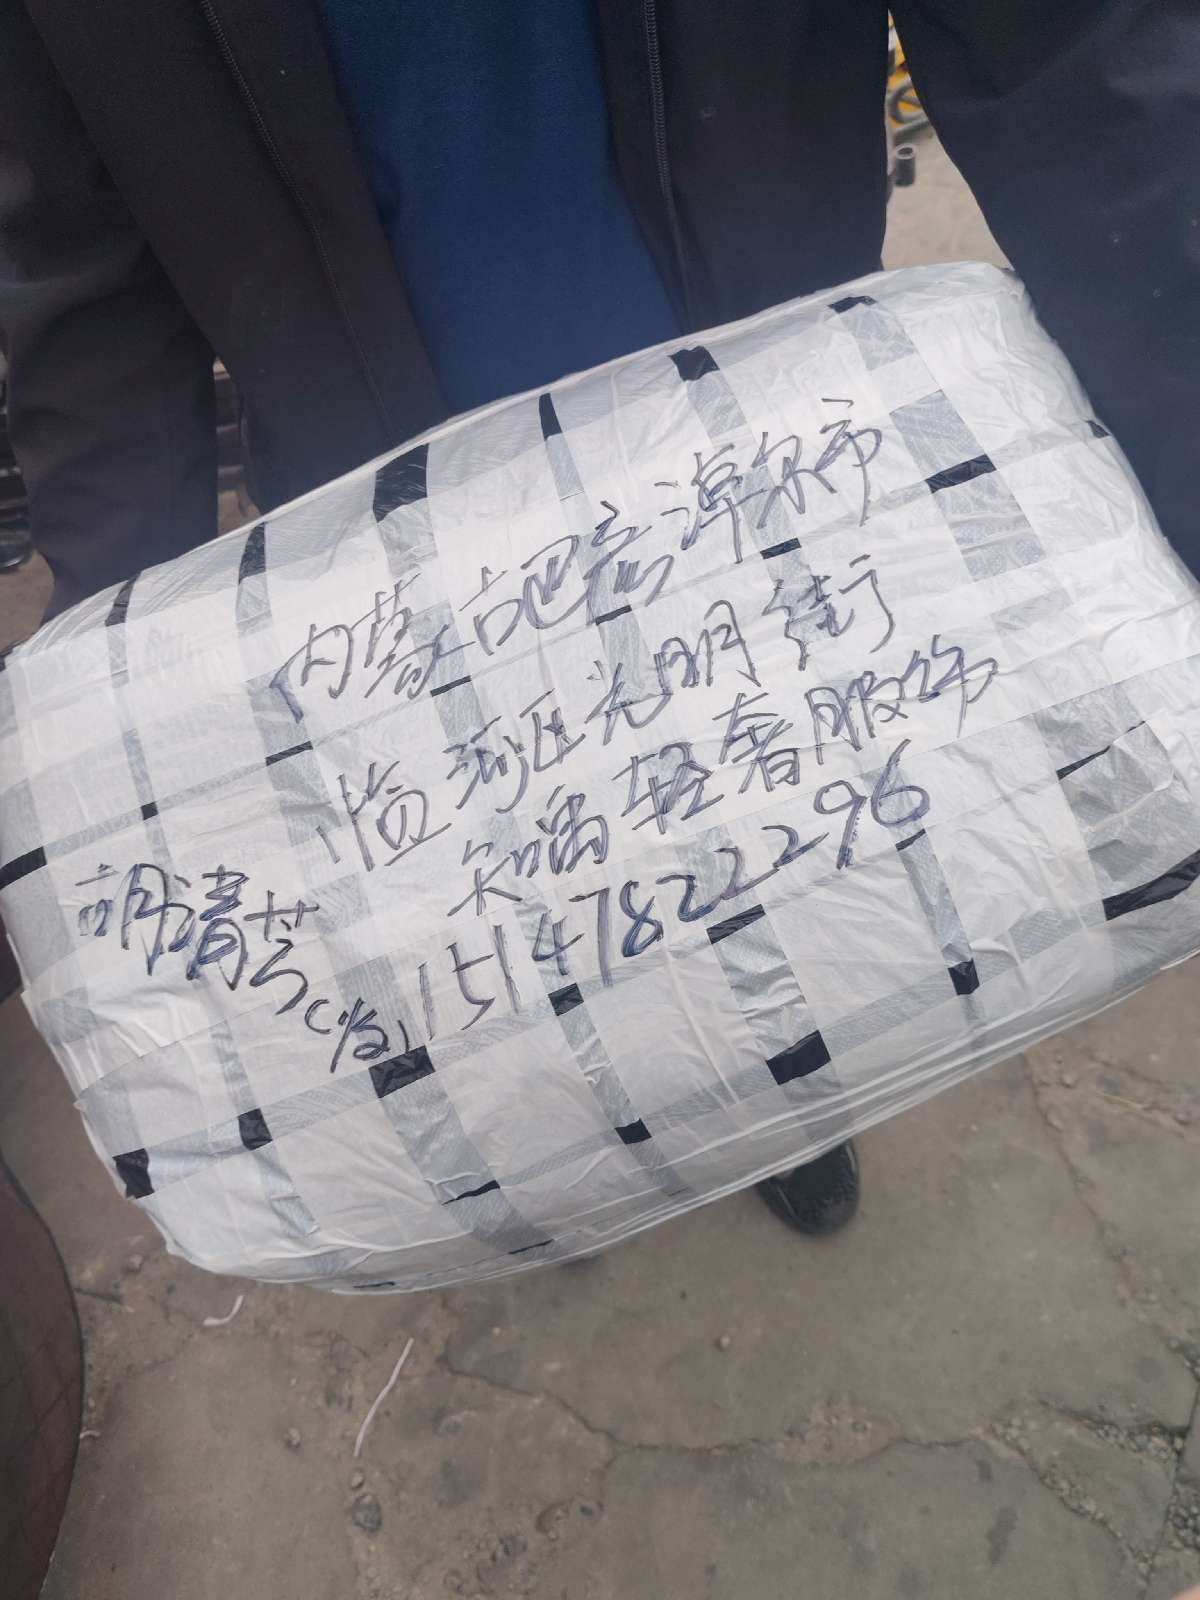 内蒙古巴彦淖尔市
临河区光明街
禾喃轻奢服饰
胡清芝(收)15147822296